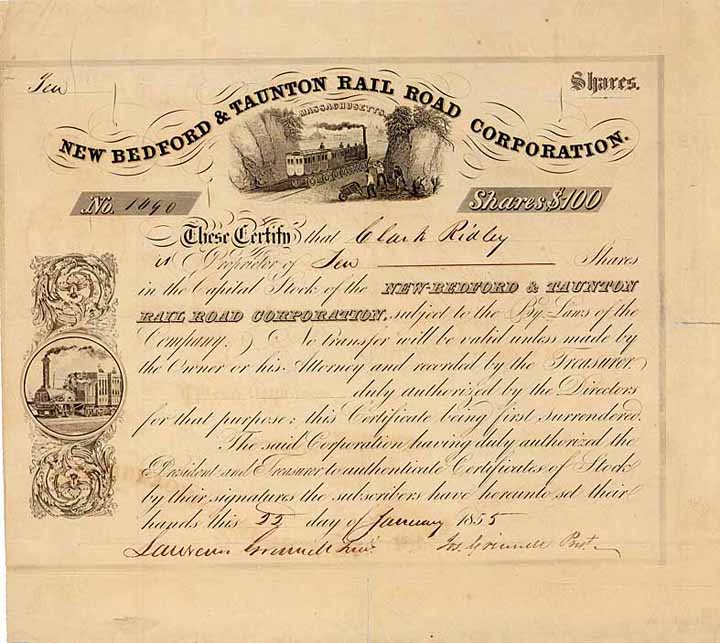 Ten Shares.
NEW BEDFORD & TAUNTON RAIL ROAD CORPORATION.
MASSACHUSETTS.
No. 1690 Shares $100
These Certify that Clark Ridley
is Proprietor of Ten Shares
in the Capital Stock of the NEW-BEDFORD & TAUNTON
RAIL ROAD CORPORATION, subject to the By-Laws of the
Company. No transfer will be valid unless made by
the Owner or his Attorney and recorded by the Treasurer
duly authorised by the Directors
for that purpose; this Certificate being first surrendered.
The said Corporation having duly authorized the
President and Treasurer to authenticate Certificates of Stock
by their signatures the subscribers have hereunto set their
hands this 22 day of January 1855
Lawrence Grinnell Jos. Grinnell Prst.